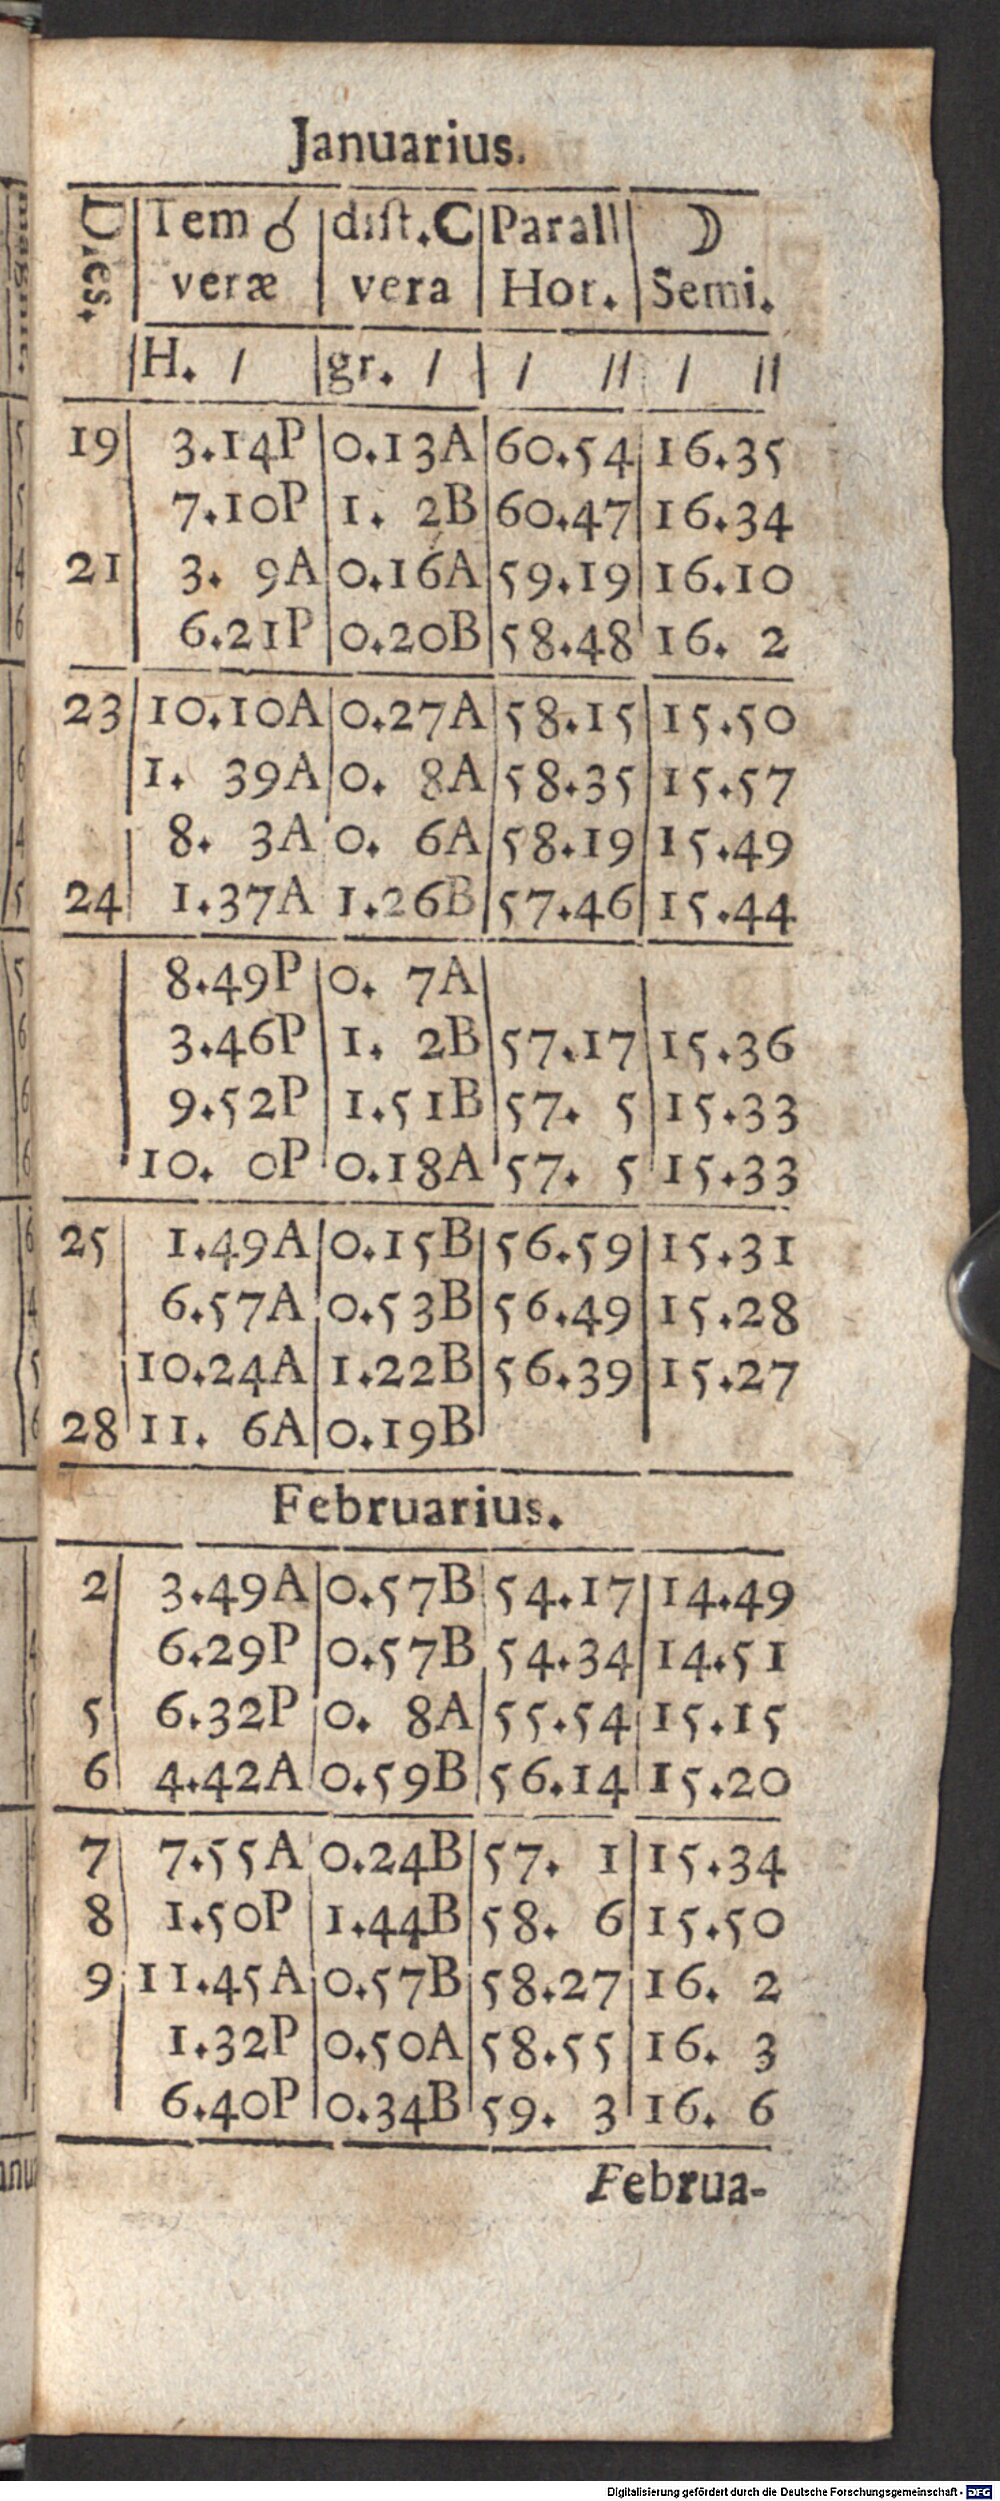 Januarius.
Dies. Tem ☌ dist. C Parall ☽
veræ vera Hor. Semi.
H. / gr. / / // / //
19 3.14P 0.13A 60.54 16.35
7.10P 1. 2B 60.47 16.34
21 3. 9A 0.16A 59.19 16.10
6.21P 0.20B 58.48 16. 2
23 10.10A 0.27A 58.15 15.50
1. 39A 0. 8A 58.35 15.57
8. 3A 0. 6A 58.19 15.49
24 1.37A 1.26B 57.46 15.44
8.49P 0. 7A
3.46P 1. 2B 57.17 15.36
9.52P 1.51B 57. 5 15.33
10. 0P 0.18A 57. 5 15.33
25 1.49A 0.15B 56.59 15.31
6.57A 0.53B 56.49 15.28
10.24A 1.22B 56.39 15.27
28 11. 6A 0.19B
Februarius.
2 3.49A 0.57B 54.17 14.49
6.29P 0.57B 54.34 14.51
5 6.32P 0. 8A 55.54 15.15
6 4.42A 0.59B 56.14 15.20
7 7.55A 0.24B 57. 1 15.34
8 1.50P 1.44B 58. 6 15.50
9 11.45A 0.57B 58.27 16. 2
1.32P 0.50A 58.55 16. 3
6.40P 0.34B 59. 3 16. 6
Februa-
Digitalisierung gefördert durch die Deutsche Forschungsgemeinschaft - DFG